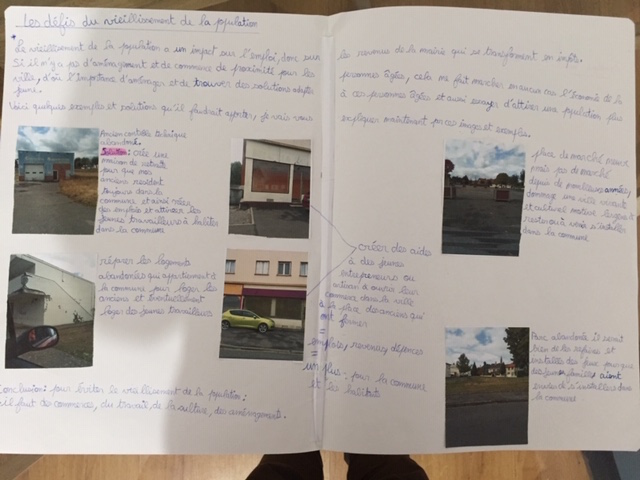 Les défis du vieillissement de la population
Le vieillissement de la population a un impact sur l'emploi, donc sur
les revenus de la mairie qui se transforment en impôts.
Si il n'y a pas d'aménagement et de commerce de proximité pour les
personnes âgées, cela ne fait marcher en aucun cas l'économie de la
ville, d'où l'importance d'aménager et de trouver des solutions adaptés
à ces personnes âgées et aussi essayer d'attirer une population plus
jeune.
Voici quelques exemples et solutions qu'il faudrait ajouter, je vais vous
expliquer maintenant par ces images et exemples.
Ancien contrôle technique
abandonné.
Solution: crée une
maison de retraite
pour que nos
anciens résident
toujours dans la
commune et ainsi créer
des emplois et attirer les
jeunes travailleurs à habiter
dans la commune
réparer les logements
abandonnés qui appartiennent à
la commune pour loger les
anciens et éventuellement
loger des jeunes travailleurs
créer des aides
à des jeunes
entrepreneurs ou
artisan à ouvrir leur
commerce dans la ville
à la place des anciens qui
ont fermer
=
emplois, revenus, dépenses
=
un plus : pour la commune
et les habitants
place de marché mais
pas de marché
depuis de nombreuses années,
dommage une ville vivante
et culturel motive les gens à
rester ou à venir s'installer
dans la commune
Parc abandonné il serait
bien de les refaires et
installer des jeux pour que
des jeunes familles aient
envies de s'installer dans
la commune
Conclusion: pour éviter le vieillissement de la population:
il faut des commerces, du travail, de la culture, des aménagements.